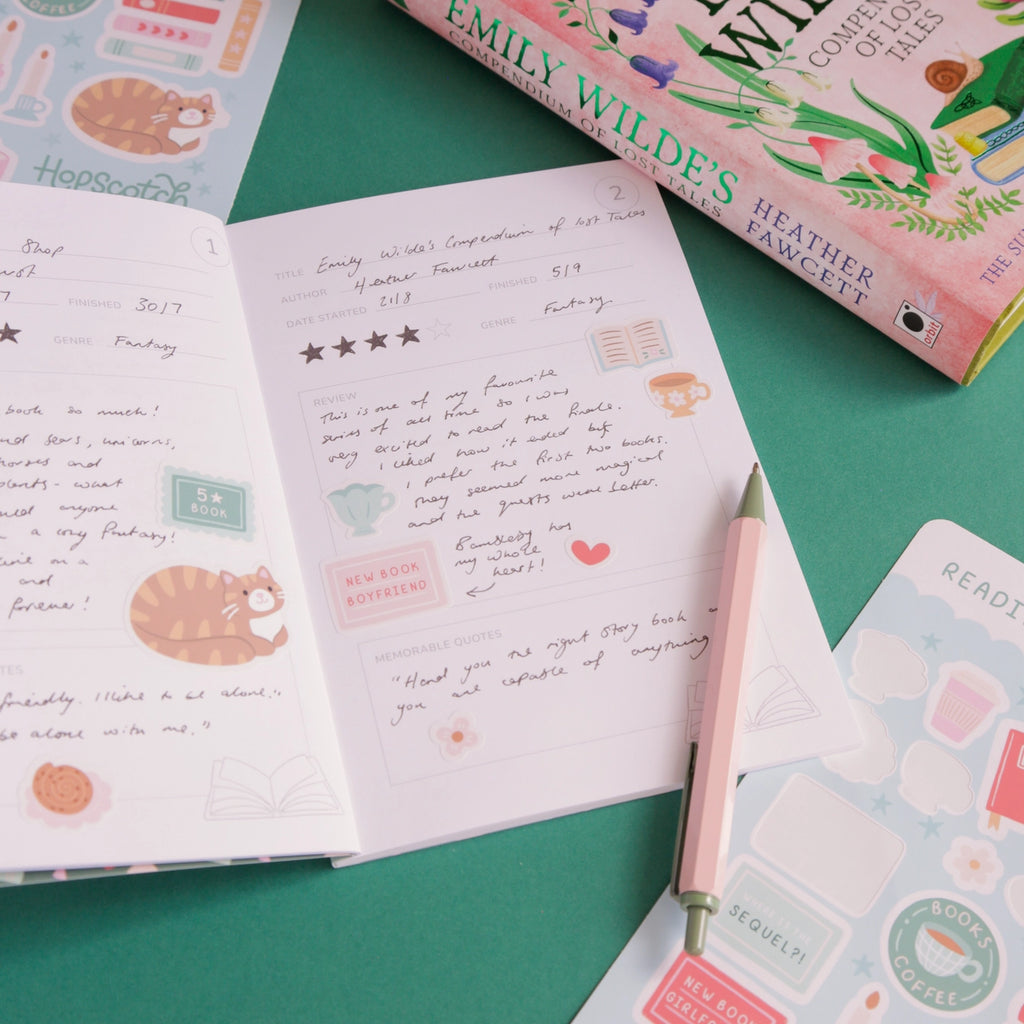 Hopscotch
EMILY WILDE'S
COMPENDIUM OF LOST TALES
HEATHER
FAWCETT
orbit
WIL
COMPEN
OF LOST
TALES
THE SU
1
Shop
7 FINISHED 30/7
GENRE Fantasy
book so much!
and bears, unicorns,
horses and
plants - what
anyone
a cosy fantasy!
on a
and
forever!
5★
BOOK
TES
friendly. I like to be alone."
be alone with me."
2
TITLE Emily Wilde's Compendium of lost Tales
AUTHOR Heather Fawcett
DATE STARTED 21/8 FINISHED 5/9
GENRE Fantasy
REVIEW
This is one of my favourite
series of all time so I was
very excited to read the finale.
I liked how it ended but
I prefer the first two books.
They seemed more magical
and the quests were better.
Bambleby has
my whole
heart!
NEW BOOK
BOYFRIEND
MEMORABLE QUOTES
"Hand you the right story book
you are capable of anything
READI
SEQUEL?!
BOOKS
COFFEE
NEW BOOK
GIRLF